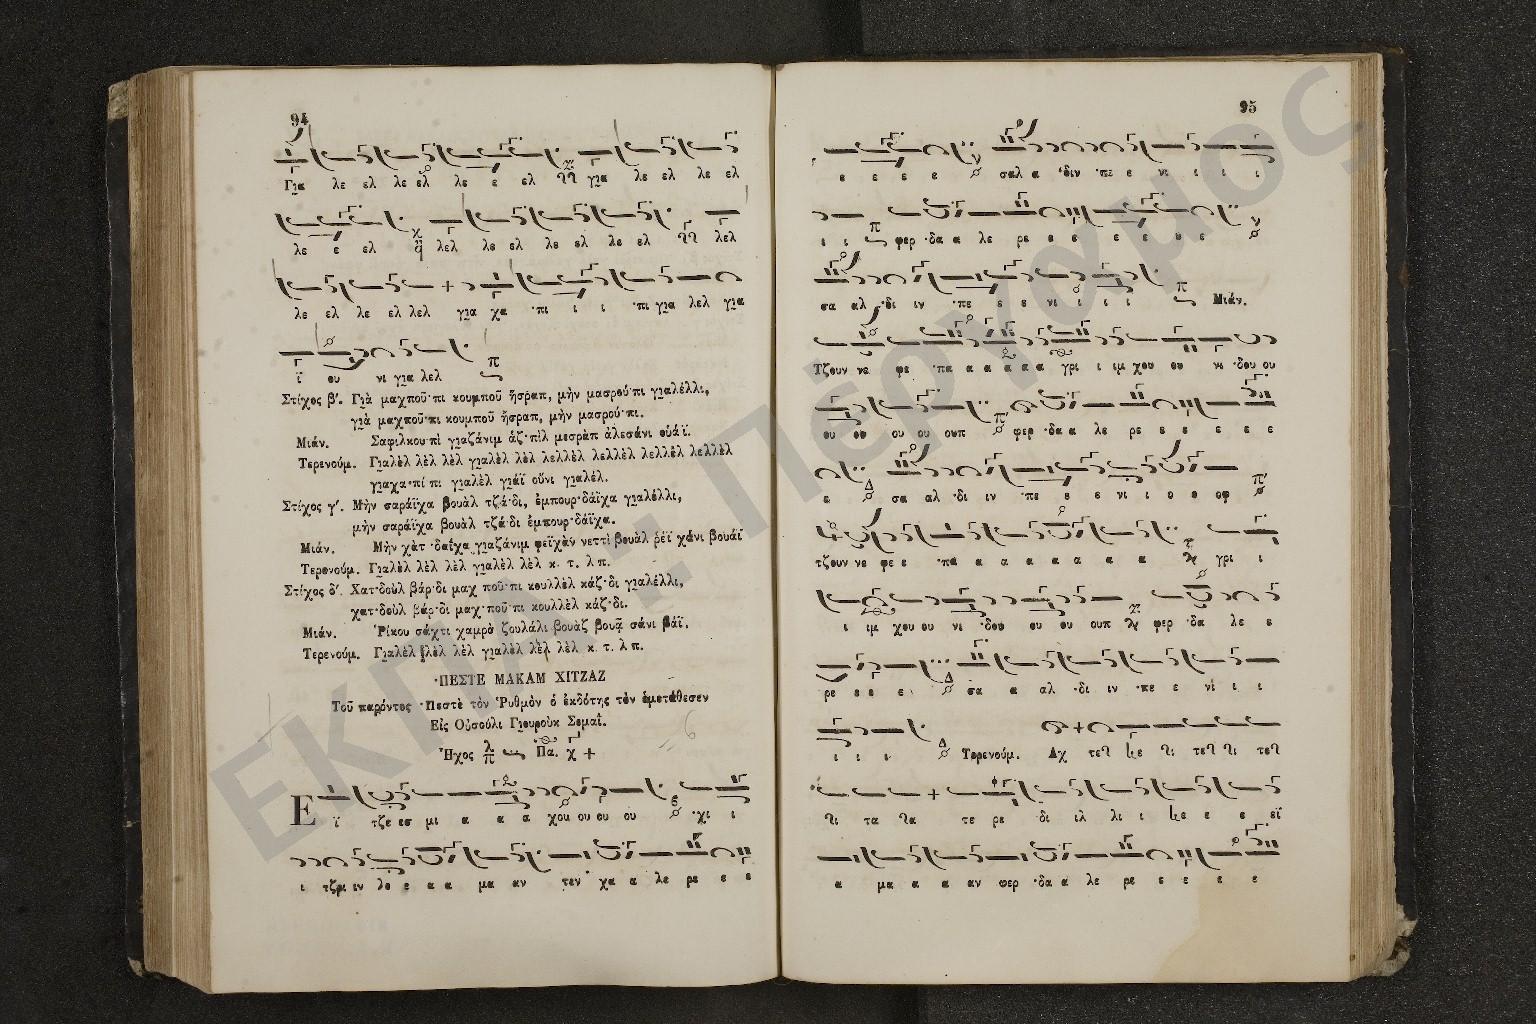 94
Για λε ελ λε ελ λε ε ελ για λε ελ λε ελ
λε ε ελ λελ λε ελ λε ελ λε ελ λελ
λε ελ λε ελ λελ για χα ·πι ι ι ·πι για λελ για
ϊ ου νι για λελ
Στίχος β′. Γιὰ μαχποῦ·πι κουμποῦ ἥσραπ, μὴν μασροὐ·πι γιαλέλλι,
γιὰ μαχποῦ·πι κουμποῦ ἥσραπ, μὴν μασροὐ·πι.
Μιάν. Σαφιλκου·πὶ γιαζάνιμ ἀζ·πὶλ μεσρὰπ ἀλεσάνι οὐάϊ.
Τερενούμ. Γιαλὲλ λὲλ λὲλ γιαλὲλ λὲλ λελλὲλ λελλὲλ λελλὲλ λελλὲλ
γιαχα·πί πι γιαλὲλ γιάϊ οὔνι γιαλέλ.
Στίχος γ′. Μὴν σαράϊχα βουὰλ τζά·δι, ἐμπουρ·δάϊχα γιαλέλλι,
μὴν σαράϊχα βουὰλ τζά·δι ἐμπουρ·δάϊχα.
Μιάν. Μὴν χὰτ·δαΐχα γιαζάνιμ φεϊχὰν νεττὶ βουὰλ ῥέϊ χάνι βουάϊ
Τερενούμ. Γιαλὲλ λὲλ λὲλ γιαλὲλ λὲλ κ. τ. λ π.
Στίχος δ′. Χατ·δοὺλ βάρ·δι μαχ ποῦ·πι κουλλὲλ κάζ·δι γιαλέλλι,
χατ·δοὺλ βάρ·δι μαχ·ποῦ·πι κουλλὲλ κάζ·δι.
Μιάν. Ῥίκου σάχτι χαμρὰ ζουλάλι βουὰζ βουᾷ σάνι βάϊ.
Τερενούμ. Γιαλὲλ λὲλ λὲλ γιαλὲλ λὲλ λὲλ κ. τ. λ π.
·ΠΕΣΤΕ ΜΑΚΑΜ ΧΙΤΖΑΖ
Τοῦ παρόντος ·Πεστὲ τὸν Ῥυθμὸν ὁ ἐκδότης τὸν ἐμετάθεσεν
Εἰς Οὐσούλι Γιουροὺκ Σεμαΐ.
Ἦχος Πα. χ
Ε ϊ τζε εσ μι α α α χου ου ου ου ·χι ι
ι τζρι ιν λε ε α α μα αν τεν χα α λε ρε ε ε
95
ε ε ε ε σαλ α ·διν ·πε ε νι ι ι ι
ι ι φερ ·δα α λε ρε ε ε ε ε ε ε
σα αλ ·δι ιν ·πε ε ε νι ι ι ι Μιάν.
Τζουν νε φε ·πα α α α α γρι ι ιμ χου ου νι ·δου ου
ου ου ου ου ουπ φερ ·δα α λε ρε ε ε ε ε ε
ε σα αλ ·δι ιν ·πε ε ε νι ι ο ο οφ
τζουν νε φε ε ·πα α α α α α α γρι ι
ι ιμ χου ου νι ·δου ου ου ουπ φερ ·δα λε ε
ρε ε ε ε σα α αλ ·δι ιν ·πε ε νι ι ι
ι ι ι Τερενούμ. Αχ
τε ρε ·δι ιλ λι ι ε ε εϊ
α μα α α αν φερ ·δα α λε ρε ε ε ε ε
ΕΚΠΑ : Πέργαμος